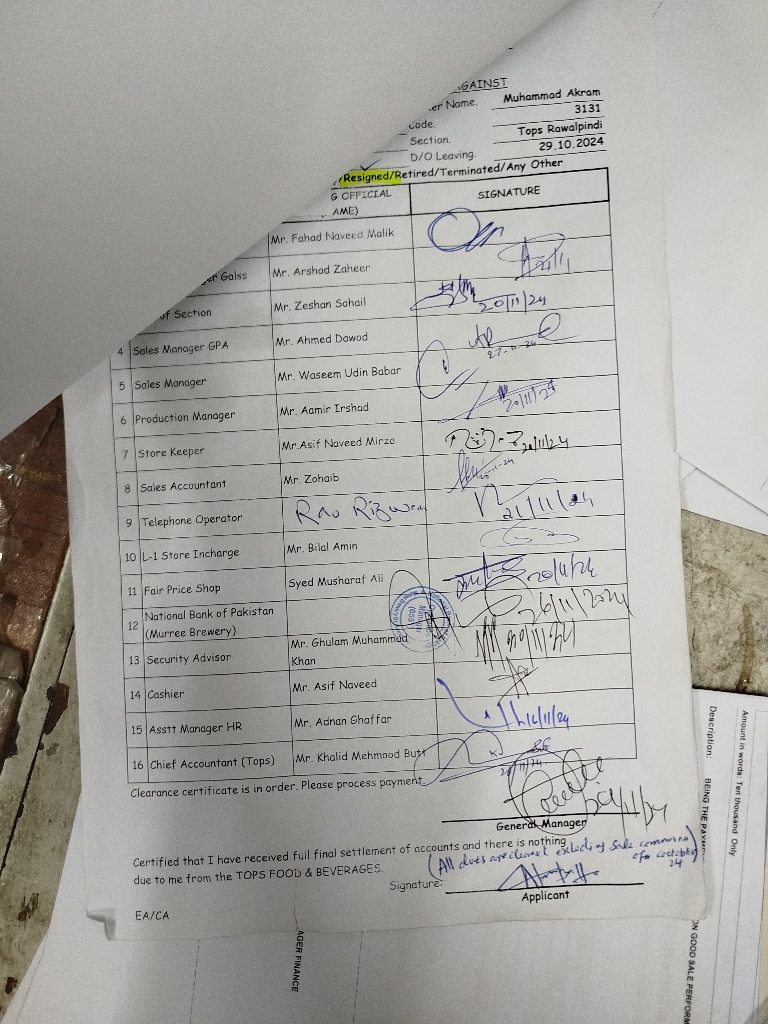 GAINST
er Name. Muhammad Akram
Code. 3131
Section. Tops Rawalpindi
D/O Leaving. 29.10.2024
/Resigned/Retired/Terminated/Any Other
G OFFICIAL SIGNATURE
AME)
Mr. Fahad Naveed Malik
er Galss Mr. Arshad Zaheer 21/11
of Section Mr. Zeshan Sohail 20/11/24
4 Sales Manager GPA Mr. Ahmed Dawod 27-11-24
5 Sales Manager Mr. Waseem Udin Babar
6 Production Manager Mr. Aamir Irshad 20/11/24
7 Store Keeper Mr.Asif Naveed Mirza 20/11/24
8 Sales Accountant Mr. Zohaib 20-11-24
9 Telephone Operator Rao Rizwan 21/11/24
10 L-1 Store Incharge Mr. Bilal Amin
11 Fair Price Shop Syed Musharaf Ali 20/11/24
12 National Bank of Pakistan 26/11/2024
(Murree Brewery)
13 Security Advisor Mr. Ghulam Muhammad
Khan
14 Cashier Mr. Asif Naveed
15 Asstt Manager HR Mr. Adnan Ghaffar
16 Chief Accountant (Tops) Mr. Khalid Mehmood Butt
Clearance certificate is in order. Please process payment
General Manager
Certified that I have received full final settlement of accounts and there is nothing
due to me from the TOPS FOOD & BEVERAGES.
(All dues are cleared excluding Sale
Signature:
Applicant
EA/CA
AGER FINANCE
Amount in words: Ten thousand Only
Description: BEING THE PAYM
ON GOOD SALE PERFORM